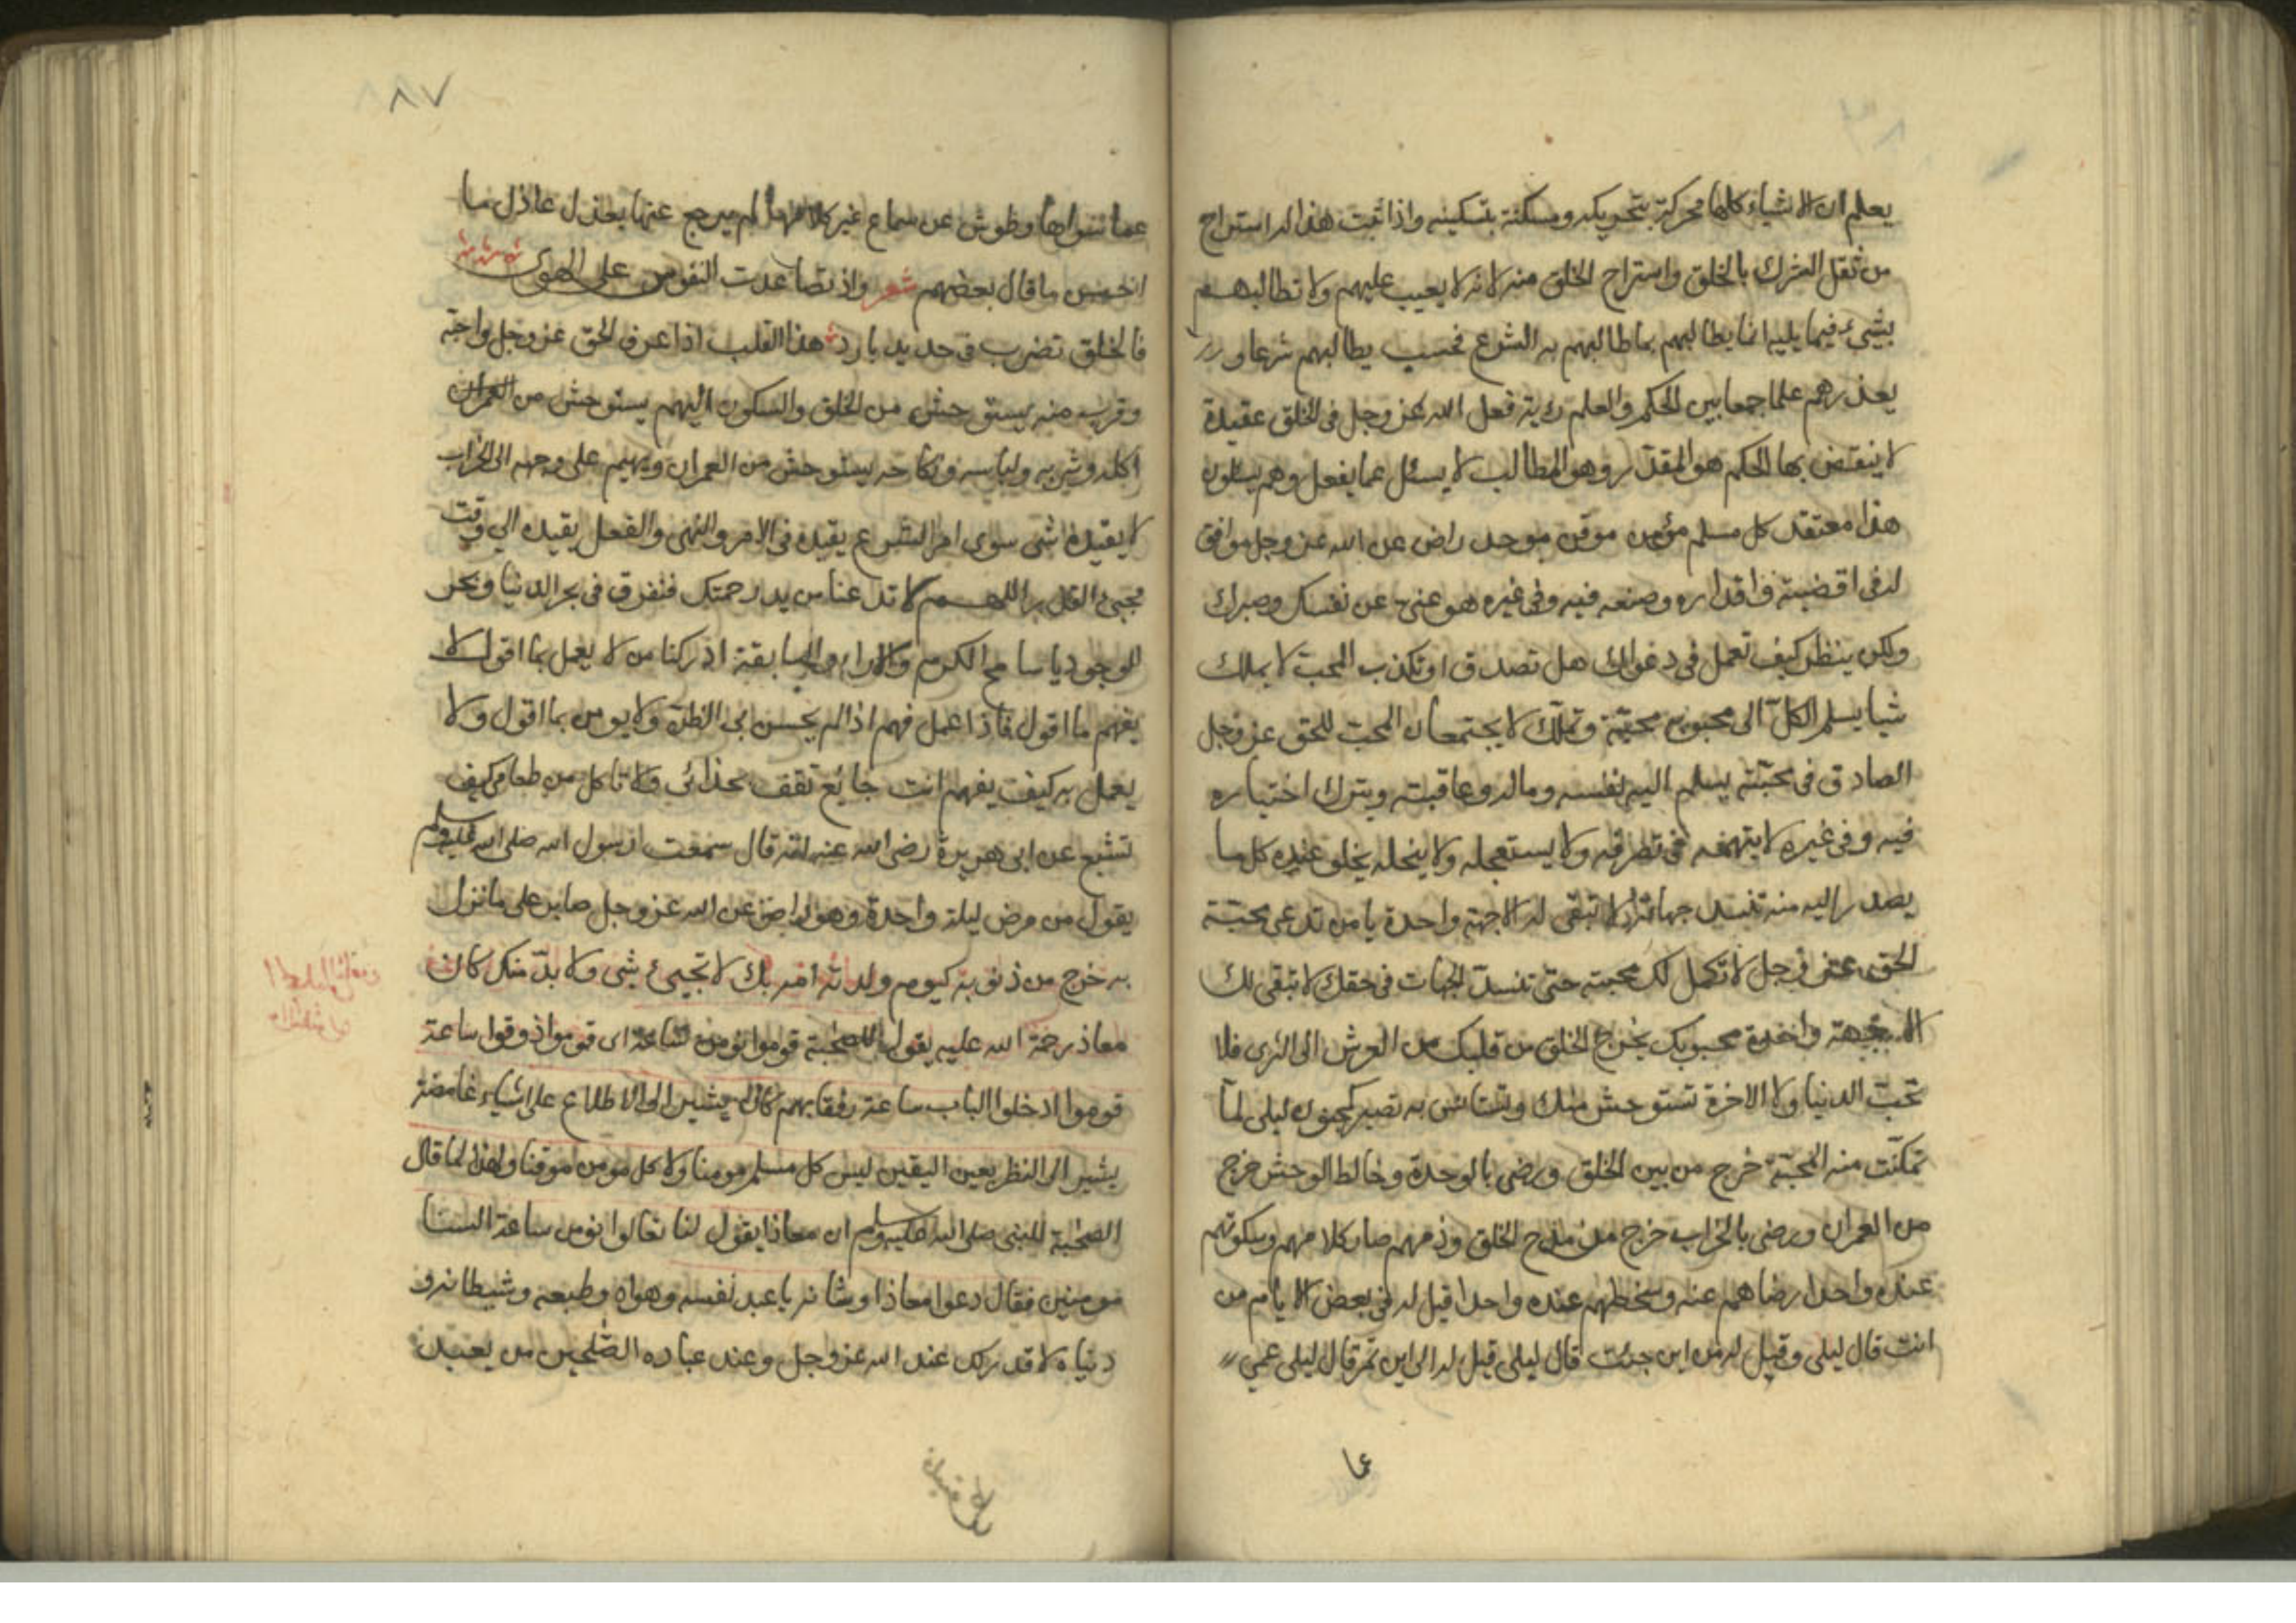 يعلم ان الاشياء كلها محركة بتحريكه ومسكنة بتسكينه واذا ثبت هذا له استراح
من ثقل الشرك بالخلق واستراح الخلق منه لانه لا يعيب عليهم ولا تطالبهم
بشيء فيما يليه انما يطالبهم بما طالبهم به الشرع فحسب يطالبهم شرعا و
يعذرهم علما جمعا بين الحكم والعلم رؤية فعل الله عز وجل فى الخلق عقيدة
لا ينقض بها الحكم هو المقدر وهو المطالب لا يسئل عما يفعل وهم يسئلون
هذا معتقد كل مسلم مؤمن موقن موحد راض عن الله عز وجل موافق
له فى اقضيته واقداره وصنعه فيه وفى غيره هو غنى عن نفسك وصبرك
ولكن ينظر كيف تعمل فى دعواك هل تصدق او تكذب المحب لا يملك
شيا يسلم الكل الى محبوبه محبة وتملك لا يجتمعان المحب للحق عز وجل
الصادق فى محبته يسلم اليه نفسه وماله وعاقبته ويترك اختياره
فيه وفى غيره لا يتهمه فى تصرفه ولا يستعجله ولا يبخله يحلو عنده كل ما
يصدر اليه منه تنسد جهاته لا تبقى له الا جهة واحدة يا من تدعى محبة
الحق عز وجل لا تكمل لك محبته حتى تنسد الجهات فى حقك لا تبقى لك
الا جهة واحدة محبوبك يخرج الخلق من قلبك من العرش الى الثرى فلا
تحب الدنيا ولا الاخرة تستوحش منك وتستانس به تصير كمجنون ليلى لما
تمكنت منه المحبة خرج من بين الخلق ورضى بالوحدة وخالط الوحش خرج
من العمران ورضى بالخراب خرج من مدح الخلق وذمهم صار كلامهم وسكوتهم
عنده واحدا رضاهم عنه وسخطهم عنده واحدا قيل له فى بعض الايام من
انت قال ليلى وقيل له من اين جئت قال ليلى قيل له الى اين تمر قال ليلى عمى
عما
٨٧
عما سواها وطرش عن سماع غير كلامها لم يرجع عنها بعذل عاذل ما
احسن ما قال بعضهم شعر واذ تصاعدت النفوس على الهوى
فالخلق تضرب فى حديد بارد هذا القلب اذا عرف الحق عز وجل واحبه
وقرب منه يستوحش من الخلق والسكون اليهم يستوحش من العمران
اكله وشربه ولباسه ونكاحه يستوحش من العمران ويهيم على وجهه الى الخراب
لا يقيده شى سوى امر الشرع يقيده فى الامر والنهى والفعل يقيده الى وقت
مجيء القدر اللهم لا تدعنا من يد رحمتك فنغرق فى بحر الدنيا وبحر
الوجود يا سامع الكرم والاراء والسابقة ادركنا من لا يعمل بما اقول لا
يفهم ما اقول فاذا عمل فهم اذا لم يحسن بى الظن ولا يومن بما اقول ولا
يعمل به كيف يفهم انت جائع تقف بحذائى ولا تاكل من طعامى كيف
تشبع عن ابى هريرة رضى الله عنه انه قال سمعت رسول الله صلى الله عليه وسلم
يقول من مرض ليلة واحدة وهو راض عن الله عز وجل صابر على ما نزل
به خرج من ذنوبه كيوم ولدته امه بك لا تجيء شى ولا بد منك كان
معاذ رحمة الله عليه يقول للصحابة قوموا نومن ساعة اى قوموا ذوقوا ساعة
قوموا ادخلوا الباب ساعة رفقا بهم كان يشير الى الاطلاع على اشياء غامضة
يشير الى النظر بعين اليقين ليس كل مسلم مومنا ولا كل مومن موقنا ولهذا لما قال
الصحابة للنبى صلى الله عليه وسلم ان معاذا يقول لنا تعالوا نومن ساعة السنا
مومنين فقال دعوا معاذا وشانه يا عبد نفسه وهواه وطبعه وشيطانه و
دنياه لا قدر لك عند الله عز وجل وعند عباده الصلحين من يعبد